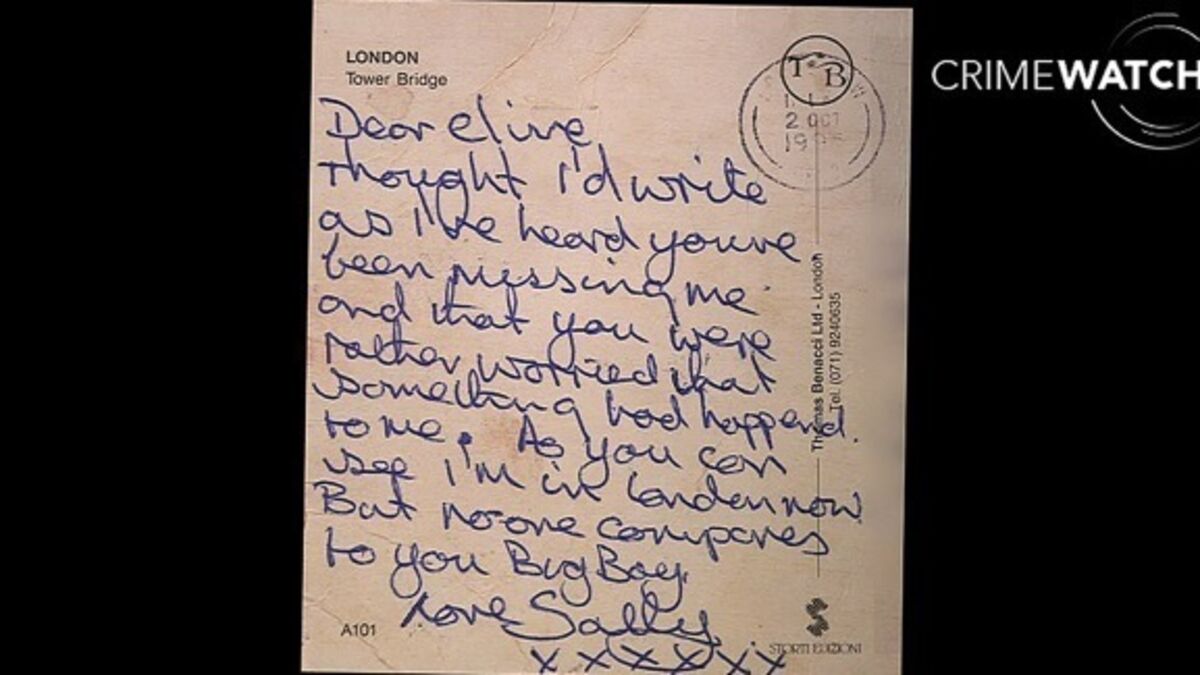 LONDON
Tower Bridge
CRIMEWATCH
T B
2 OCT
Dear Clive
Thought I'd write
as I've heard you've
been missing me
and that you were
rather worried that
something had happend.
to me. As you can
see I'm in London now
But no-one compares
to you Big Boy.
Love Sally
x x x x x x
Thomas Benacci Ltd - London
Tel. (071) 9240635
A101
STORTI EDIZIONI